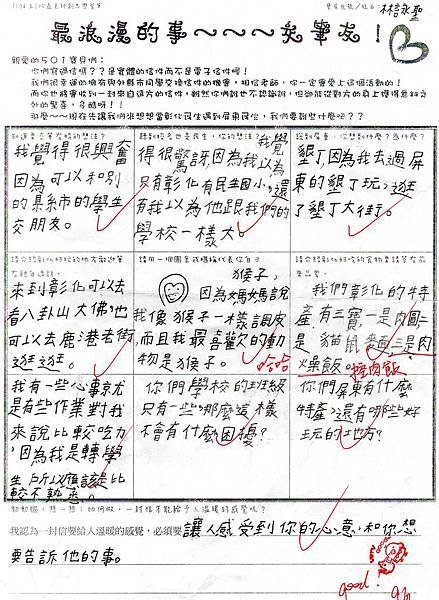 最浪漫的事～～～交筆友！
林詠聖
親愛的501寶貝們：
你們寫過信嗎？？是實體的信件而不是電子信件喔！
我們很幸運的擁有與外縣市同學交換信件的機會，相信老師，你一定會愛上這個活動的！
而你也將會收到一封來自遠方的信件，雖然你們誰也不認識誰，但卻能從對方的身上獲得意料之
外的驚喜，多酷呀！！
那麼～～現在先讓我們來想想當彰化民生遇到屏東民生，我們要說些什麼呢？？
我覺得很興奮
因為可以和別
的縣市的學生
交朋友。
我覺
得很驚訝因為我以為
只有彰化有民生國小，還
有我以為他跟我們的
學校一樣大。
墾丁，因為我去過屏
東的墾丁玩，逛
了墾丁大街。
來到彰化可以去
看八卦山大佛，也
可以去鹿港老街
逛逛。
猴子，
因為媽媽說
我像猴子一樣調皮
，而且我最喜歡的動
物是猴子。
哈哈
我們彰化的特
產有三寶，一是肉圓二
是貓鼠麵，三是肉
燥飯。
我有一些心事就
是有些作業對我
來說比較吃力
，因為我是轉學
生所以應該是比
較不熟悉。
你們學校的班級
只有一些，那麼這樣
不會有什麼困擾？
你們屏東有什麼
特產，還有哪些好
玩的地方？
我認為一封信要給人溫暖的感覺，必須要讓人感受到你的心意，和你想
要告訴他的事。
good！